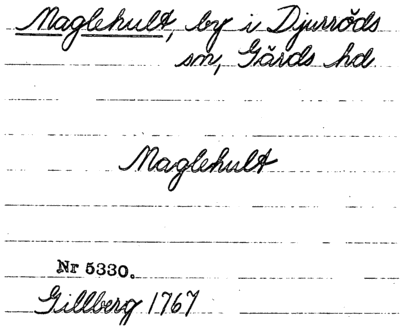 Maglehult, by i Djurröds
sn, Gärds hd
Maglehult
Nr 5330.
Gillberg 1767